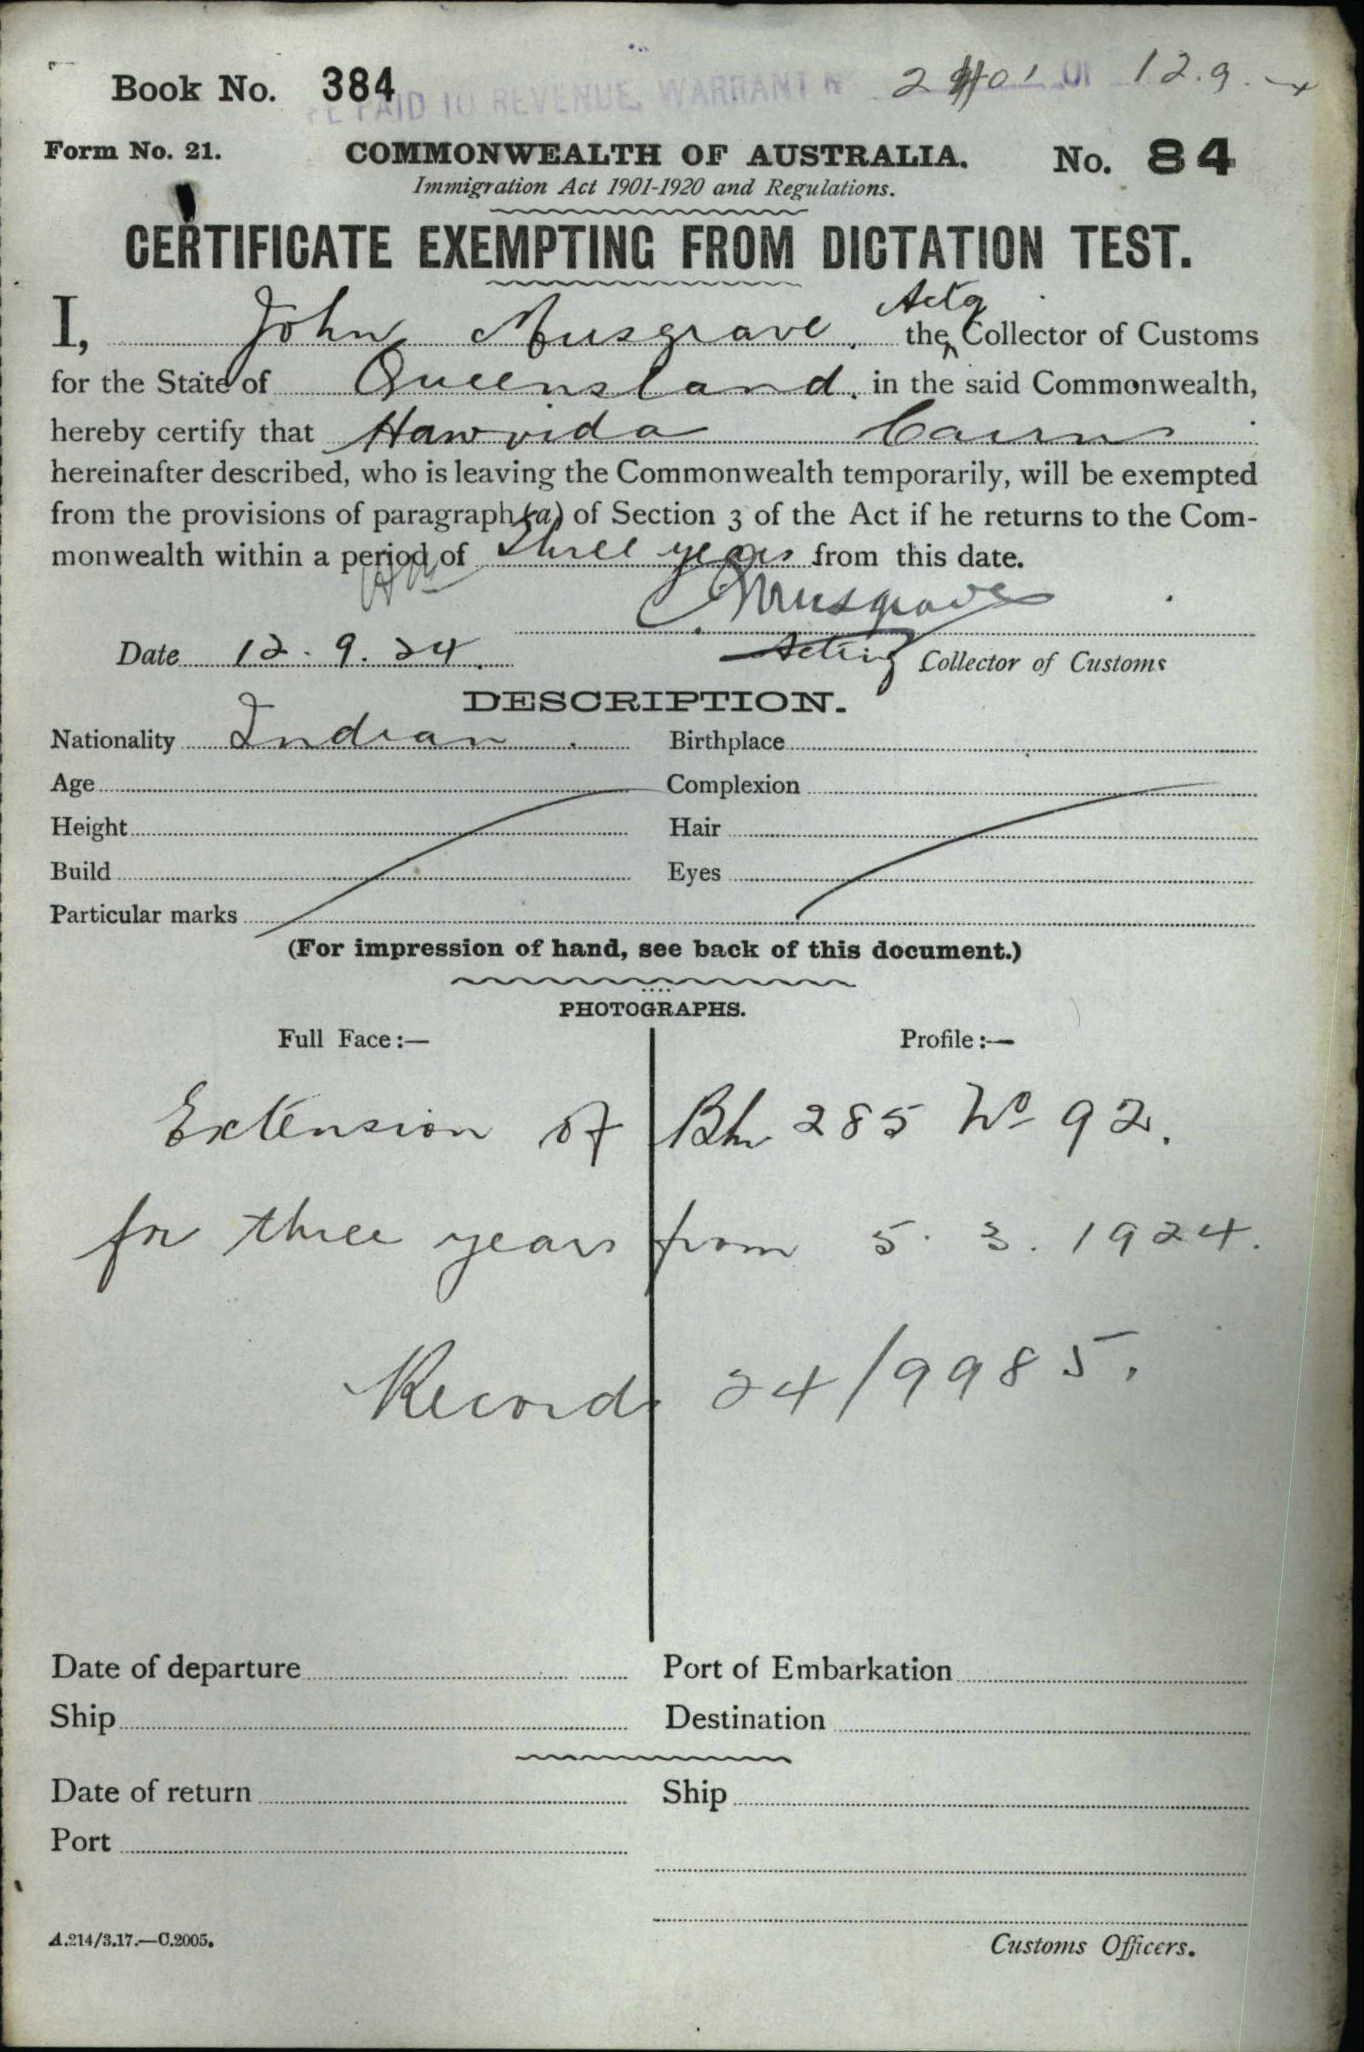 Book No. 384
FEE PAID TO REVENUE, WARRANT No 2401 OF 12.9.
Form No. 21. COMMONWEALTH OF AUSTRALIA. No. 84
Immigration Act 1901-1920 and Regulations.
CERTIFICATE EXEMPTING FROM DICTATION TEST.
I, John Musgrave, the Actg Collector of Customs
for the State of Queensland, in the said Commonwealth,
hereby certify that Hawvida Cairns
hereinafter described, who is leaving the Commonwealth temporarily, will be exempted
from the provisions of paragraph (a) of Section 3 of the Act if he returns to the Com-
monwealth within a period of three years from this date.
Musgrave
Date 12.9.24. Acting Collector of Customs
DESCRIPTION.
Nationality Indian Birthplace
Age Complexion
Height Hair
Build Eyes
Particular marks
(For impression of hand, see back of this document.)
PHOTOGRAPHS.
Full Face :— Profile :—
Extension of Bk 285 No 92.
for three years from 5. 3. 1924.
Records 24/9985.
Date of departure Port of Embarkation
Ship Destination
Date of return Ship
Port
A.214/3.17.—C.2005. Customs Officers.